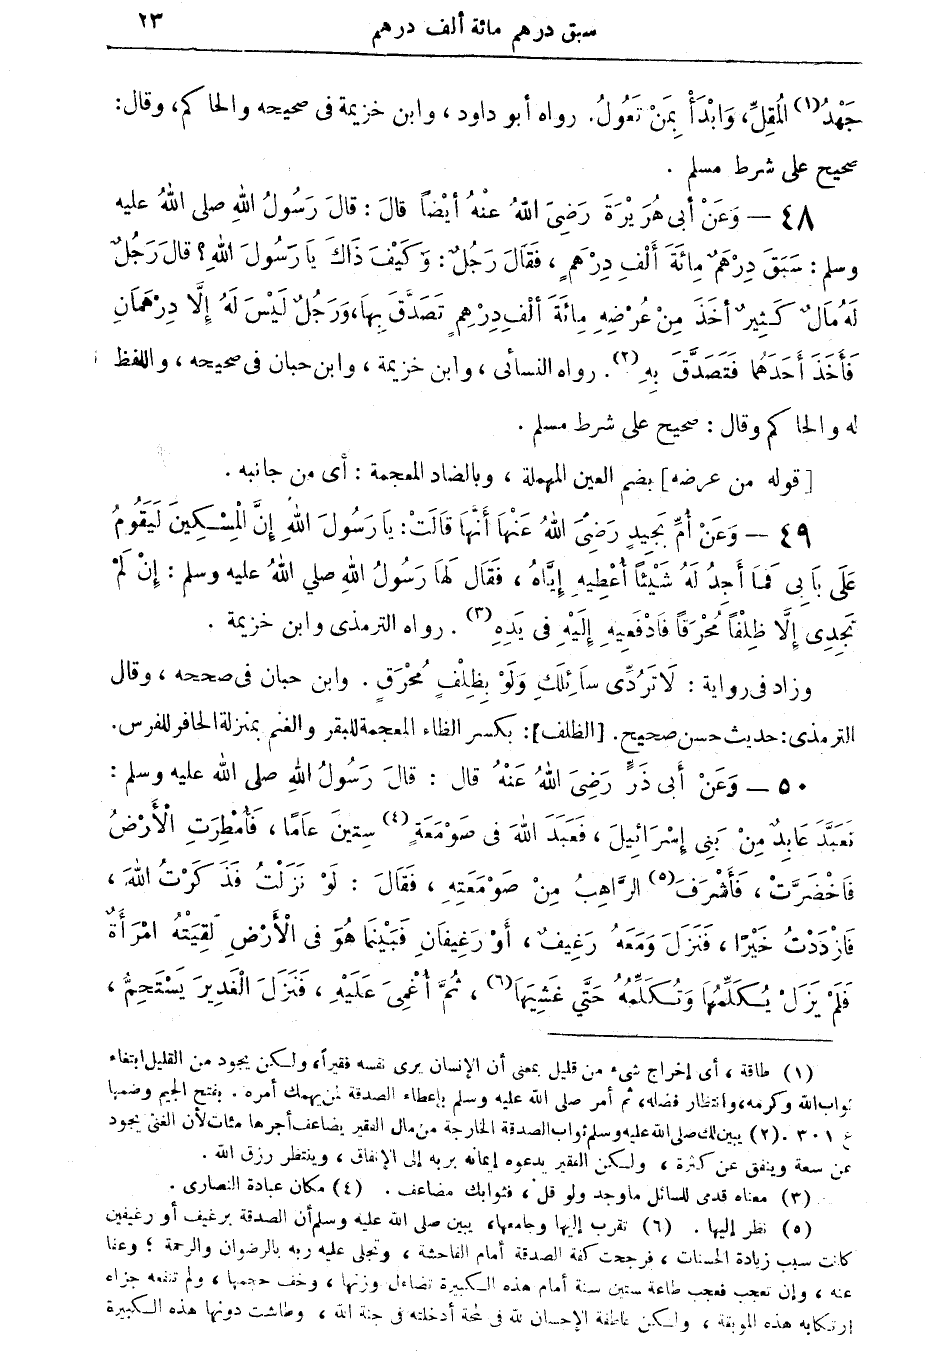 سبق درهم مائة ألف درهم ٢٣
جَهْدُ(١) الْمُقِلِّ، وَابْدَأْ بِمَنْ تَعُولُ. رواه أبو داود ، وابن خزيمة فى صحيحه والحاكم، وقال:
صحيح على شرط مسلم .
٤٨ — وَعَنْ أبى هُرَيْرَةَ رَضِىَ اللهُ عَنْهُ أيْضاً قالَ : قالَ رَسُولُ اللهِ صلى اللهُ عليه
وسلم : سَبَقَ دِرْهَمٌ مِائَةَ أَلْفِ دِرْهَمٍ ، فَقَالَ رَجُلٌ : وَكَيْفَ ذَاكَ يَا رَسُولَ اللهِ؟ قالَ رَجُلٌ
لَهُ مَالٌ كَثِيرٌ أخَذَ مِنْ عُرْضِهِ مِائَةَ ألْفِ دِرْهمٍ تَصَدَّقَ بِهَا، وَرَجُلٌ لَيْسَ لَهُ إلَّا دِرْهَمَانِ
فَأَخَذَ أحَدَهُمَا فَتَصَدَّقَ بِهِ(٢). رواه النسائى ، وابن خزيمة ، وابن حبان فى صحيحه ، واللفظ
له والحاكم وقال : صحيح على شرط مسلم .
[قوله من عرضه] بضم العين المهملة ، وبالضاد المعجمة : أى من جانبه .
٤٩ — وَعَنْ أُمِّ بُجَيدٍ رَضِىَ اللهُ عَنْهَا أَنَّهَا قَالَتْ: يا رَسُولَ اللهِ إنَّ الْمِسْكِينَ لَيَقُومُ
عَلَى بَابِى فَمَا أَجِدُ لَهُ شَيْئاً أُعْطِيهِ إيَّاهُ ، فَقَال لَهَا رَسُولُ اللهِ صلي اللهُ عليه وسلم : إنْ لَمْ
تَجِدِى إلَّا ظِلْفاً مُحْرَقاً فَادْفَعِيهِ إلَيْهِ فى يَدِهِ(٣) . رواه الترمذى وابن خزيمة .
وزاد فى رواية : لَا تَرُدِّى سائِلَكِ وَلَوْ بِظِلْفٍ مُحْرَقٍ . وابن حبان فى صححه ، وقال
الترمذى: حديث حسن صحيح. [الظلف]: بكسر الظاء المعجمة للبقر والغنم بمنزلة الحافر للفرس.
٥٠ — وَعَنْ أبى ذَرٍّ رَضِىَ اللهُ عَنْهُ قال : قالَ رَسُولُ اللهِ صلى الله عليه وسلم :
تَعَبَّدَ عَابِدٌ مِنْ بَنِى إِسْرَائِيلَ ، فَعَبَدَ اللهَ فى صَوْمَعَةٍ(٤) سِتينَ عَامًا ، فَأَمْطِرَتِ الْأَرْضُ
فَاخْضَرَّتْ ، فَأَشْرَفَ(٥) الرَّاهِبُ مِنْ صَوْمَعَتِهِ ، فَقَالَ : لَوْ نَزَلْتُ فَذَكَرْتُ اللهَ ،
فَازْدَدْتُ خَيْرًا ، فَنَزَلَ وَمَعَهُ رَغِيفٌ ، أَوْ رَغِيفَانِ فَبَيْنَمَا هُوَ فى الْأَرْضِ لَقِيَتْهُ امْرَأَةٌ
فَلَمْ يَزَلْ يُكَلِّمُهَا وَتُكَلِّمُهُ حَتَّي غَشِيَهَا(٦) ، ثُمَّ أُغْمِىَ عَلَيْهِ ، فَنَزَلَ الْغَدِيرَ يَسْتَحِمُّ ،
(١) طاقة ، أى إخراج شىء من قليل بمعنى أن الإنسان يرى نفسه فقيراً، ولكن يجود من القليل ابتغاء
ثواب الله وكرمه، وانتظار فضله، ثم أمر صلى الله عليه وسلم بإعطاء الصدقة لمن يهمك أمره . بفتح الجيم وضمها
ع ٣٠١ . (٢) يبين لك صلى الله عليه وسلم ثواب الصدقة الخارجة من مال الفقير يضاعف أجرها مئات لأن الغنى يجود
عن سعة وينفق عن كثرة ، ولكن الفقير يدعوه إيمانه بربه إلى الإنفاق ، وينتظر رزق الله .
(٣) معناه قدمى للسائل ما وجد ولو قل ، فثوابك مضاعف . (٤) مكان عبادة النصارى .
(٥) نظر إليها . (٦) تقرب إليها وجامعها، يبين صلى الله عليه وسلم أن الصدقة برغيف أو رغيفين
كانت سبب زيادة الحسنات ، فرجحت كفة الصدقة أمام الفاحشة ، وتجلى عليه ربه بالرضوان والرحمة ؛ وعفا
عنه ، وإن تعجب فعجب طاعة ستين سنة أمام هذه الكبيرة تضاءل وزنها ، وخف حجمها ، ولم تنفعه جزاء
ارتكابه هذه الموبقة ، ولكن عاطفة الإحسان لله فى لمحة أدخلته فى جنة الله ، وطاشت دونها هذه الكبيرة